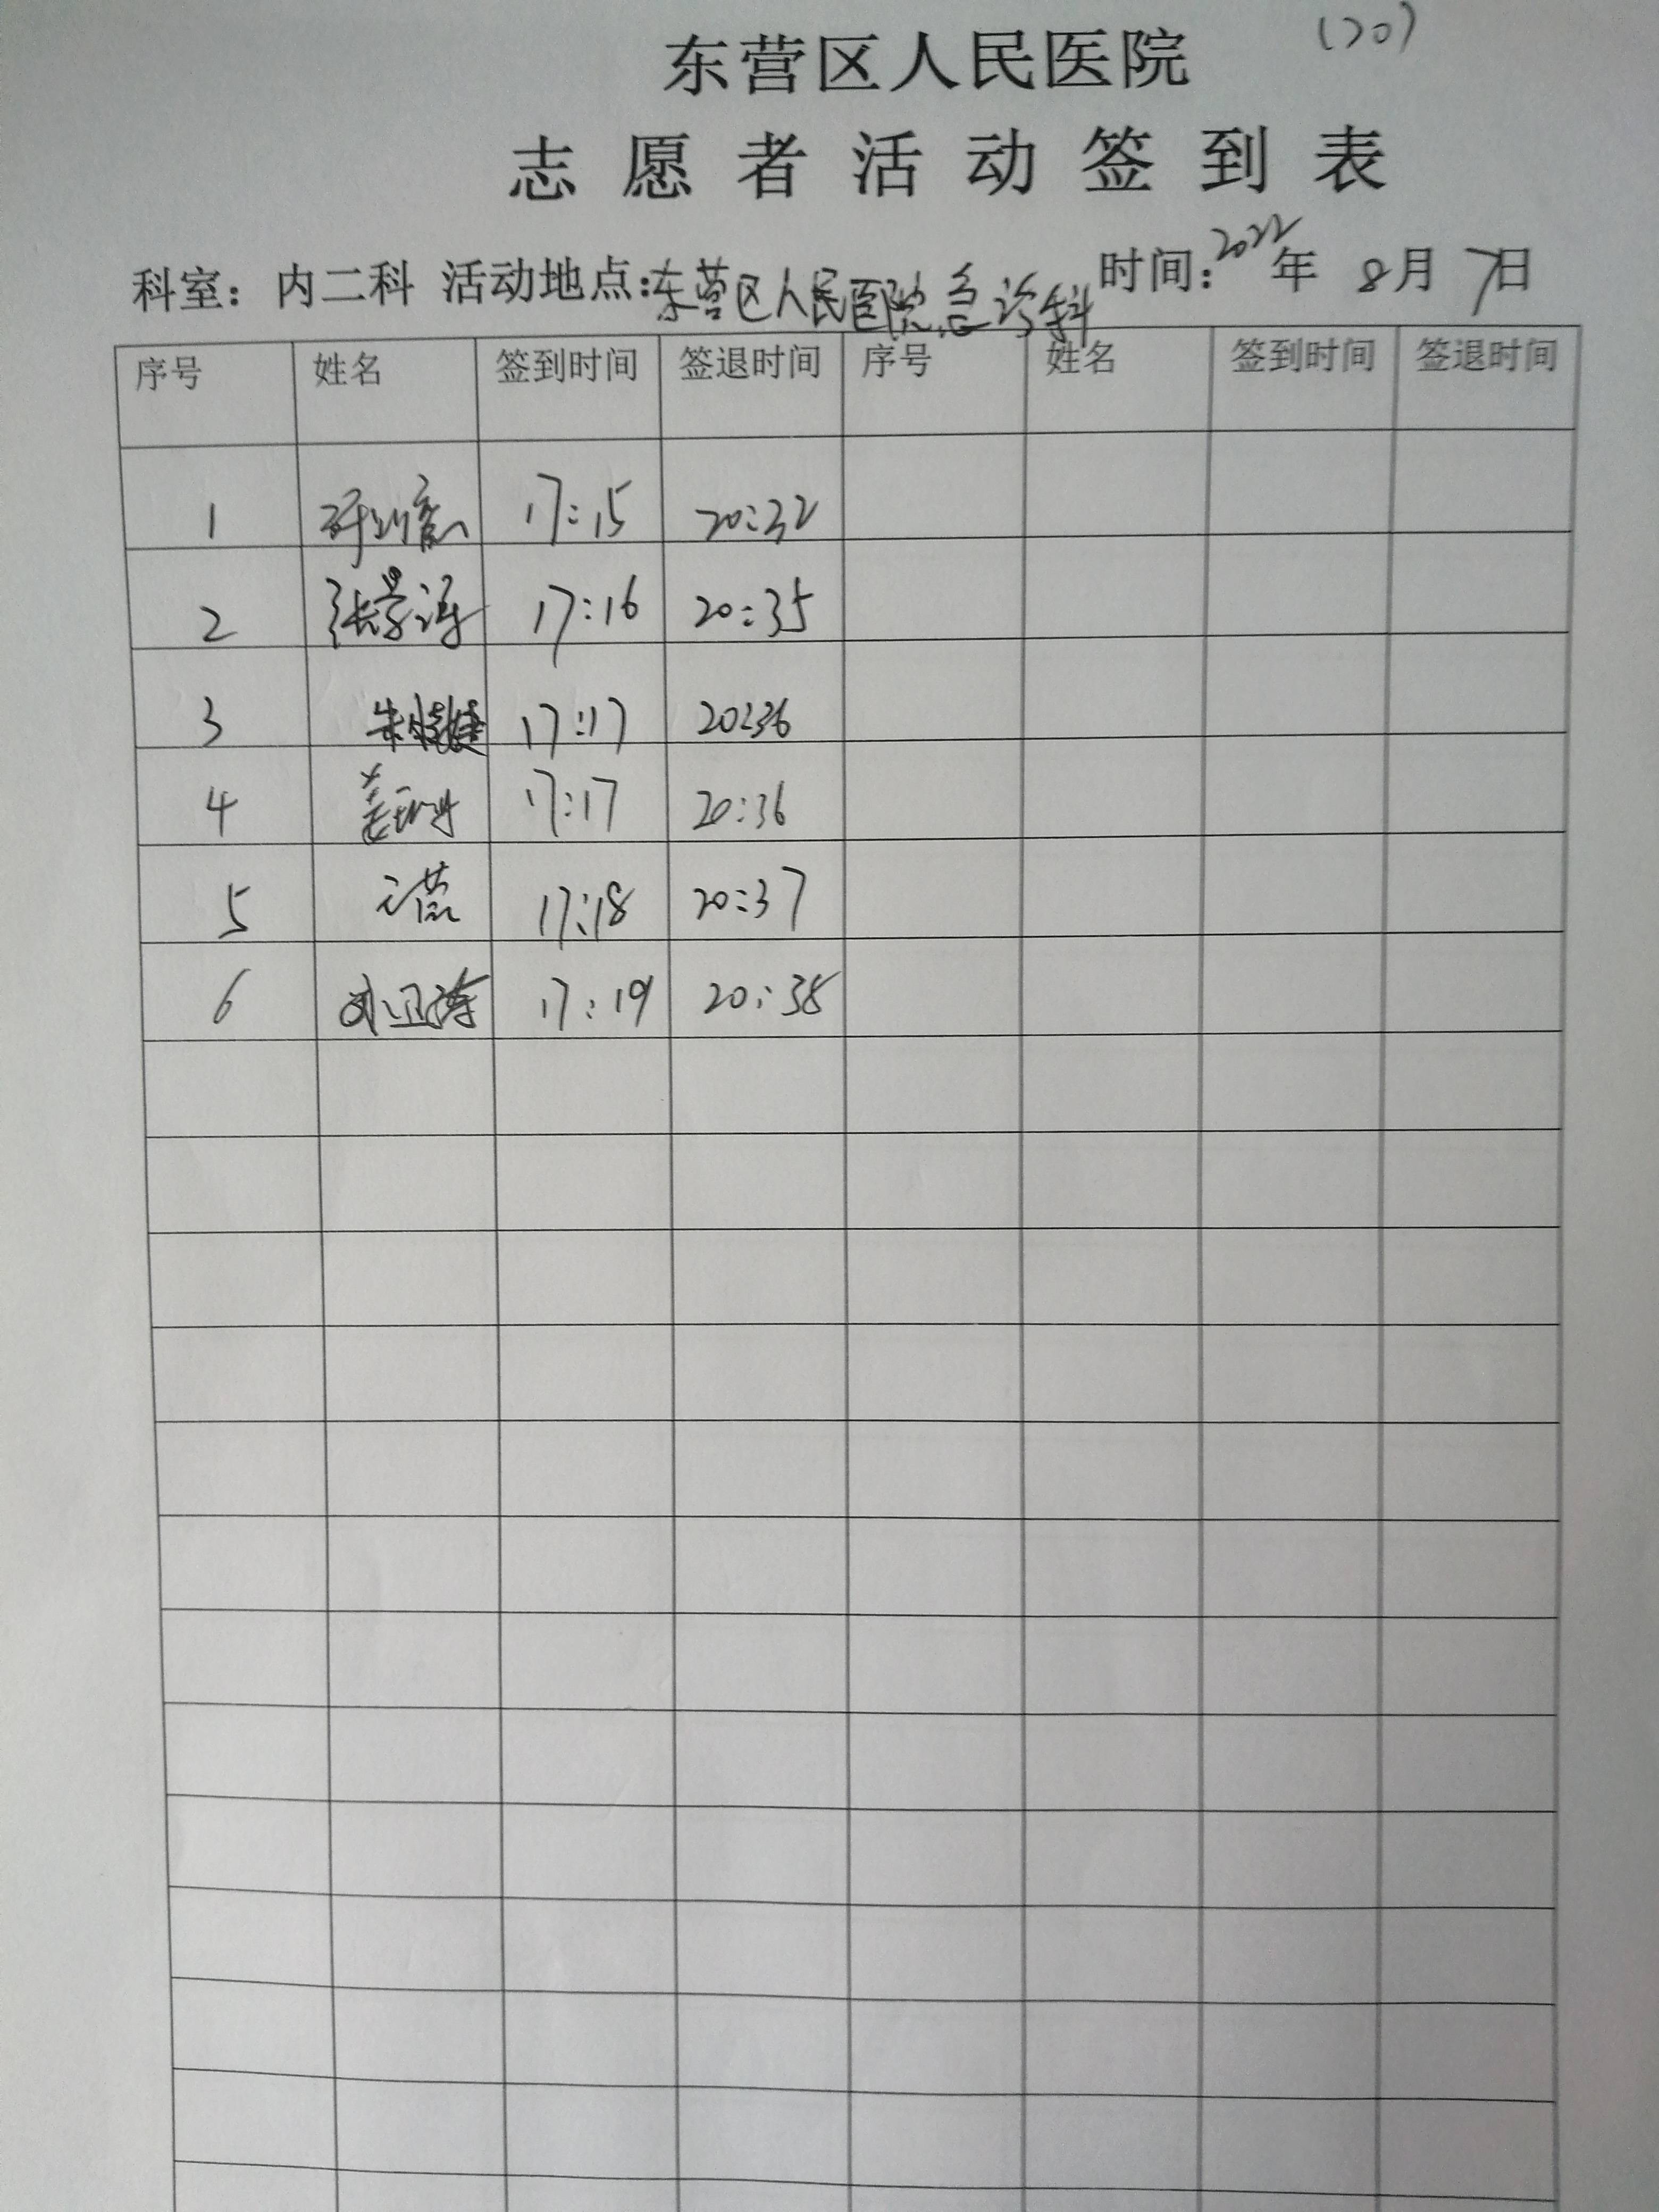 (20)
东营区人民医院
志愿者活动签到表
科室：内二科 活动地点：东营区人民医院急诊科 时间：2022年 8月 7日
序号 姓名 签到时间 签退时间 序号 姓名 签到时间 签退时间
1 17:15 20:32
2 张景涛 17:16 20:35
3 17:17 20:36
4 17:17 20:36
5 17:18 20:37
6 刘卫涛 17:19 20:38